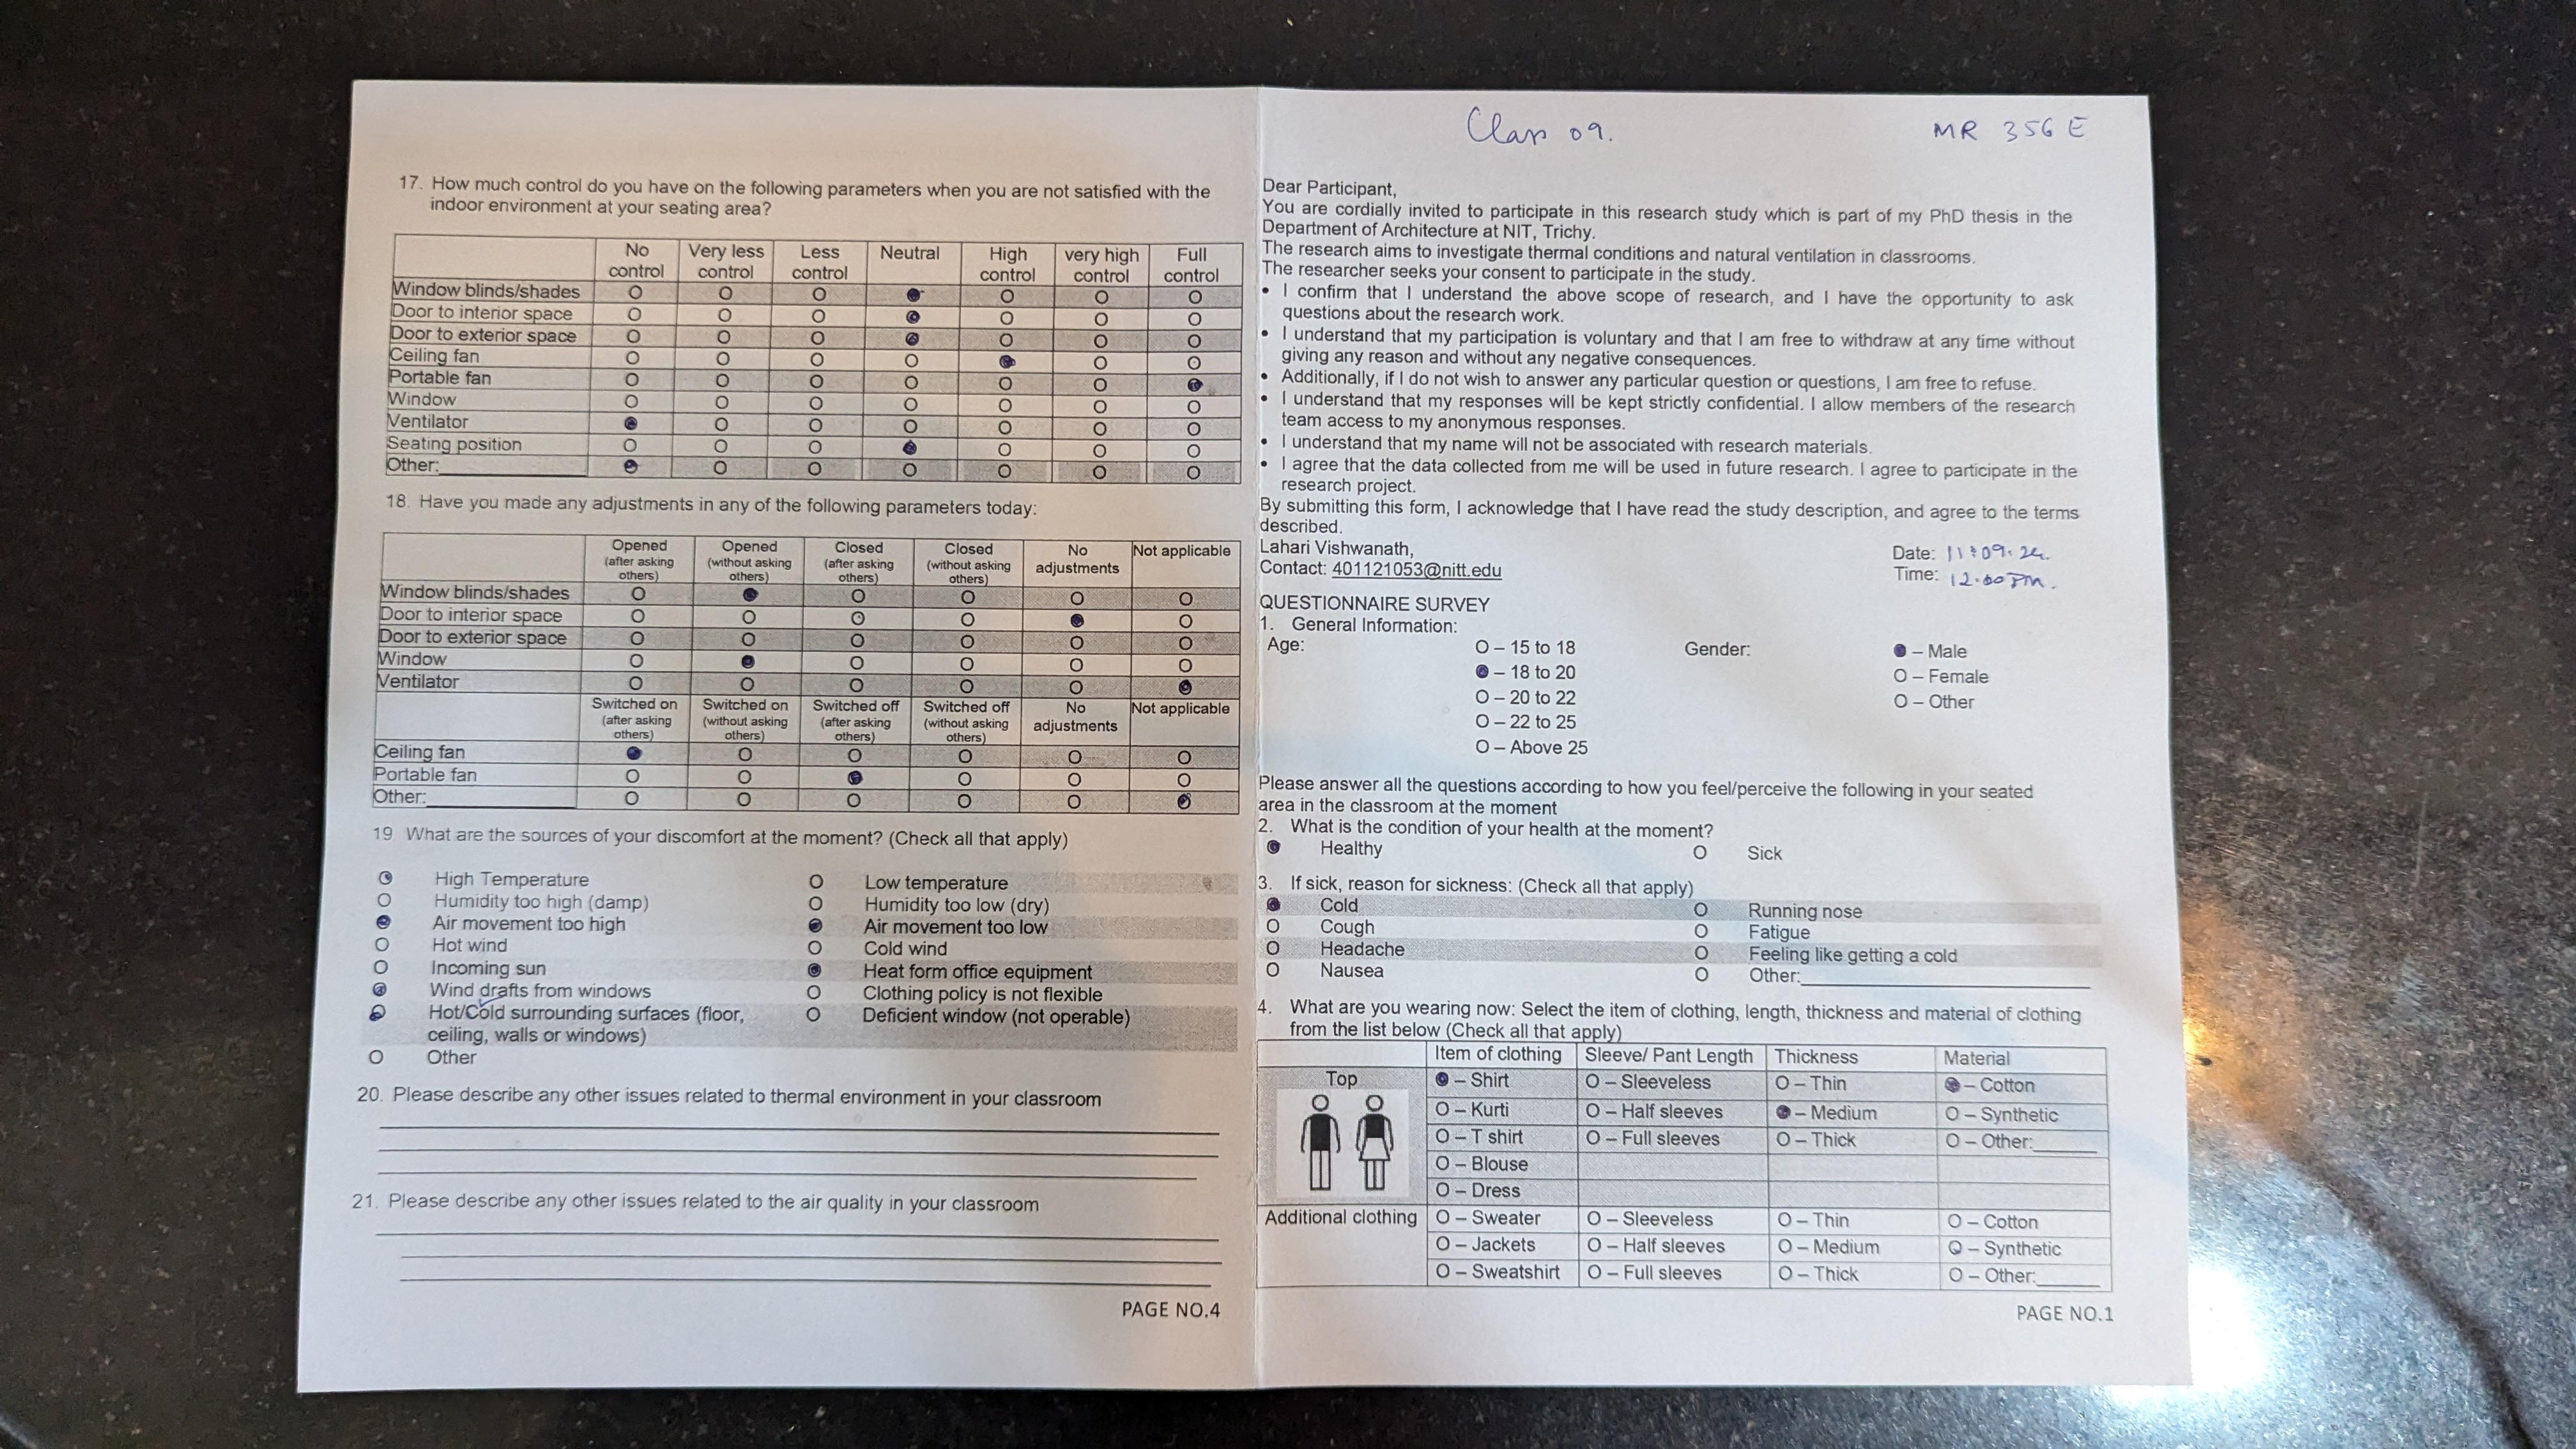 17. How much control do you have on the following parameters when you are not satisfied with the
indoor environment at your seating area?
No control Very less control Less control Neutral High control very high control Full control
Window blinds/shades O O O O O O
Door to interior space O O O O O O
Door to exterior space O O O O O O
Ceiling fan O O O O O O
Portable fan O O O O O O
Window O O O O O O O
Ventilator O O O O O O
Seating position O O O O O O
Other: O O O O O O
18. Have you made any adjustments in any of the following parameters today:
Opened (after asking others) Opened (without asking others) Closed (after asking others) Closed (without asking others) No adjustments Not applicable
Window blinds/shades O O O O O
Door to interior space O O O O O
Door to exterior space O O O O O O
Window O O O O O
Ventilator O O O O O
Switched on (after asking others) Switched on (without asking others) Switched off (after asking others) Switched off (without asking others) No adjustments Not applicable
Ceiling fan O O O O O
Portable fan O O O O O
Other: O O O O O
19 What are the sources of your discomfort at the moment? (Check all that apply)
High Temperature O Low temperature
O Humidity too high (damp) O Humidity too low (dry)
Air movement too high Air movement too low
O Hot wind O Cold wind
O Incoming sun Heat form office equipment
Wind drafts from windows O Clothing policy is not flexible
Hot/Cold surrounding surfaces (floor, O Deficient window (not operable)
ceiling, walls or windows)
O Other
20. Please describe any other issues related to thermal environment in your classroom
21. Please describe any other issues related to the air quality in your classroom
PAGE NO.4
Class 09. MR 356 E
Dear Participant,
You are cordially invited to participate in this research study which is part of my PhD thesis in the
Department of Architecture at NIT, Trichy.
The research aims to investigate thermal conditions and natural ventilation in classrooms.
The researcher seeks your consent to participate in the study.
• I confirm that I understand the above scope of research, and I have the opportunity to ask
questions about the research work.
• I understand that my participation is voluntary and that I am free to withdraw at any time without
giving any reason and without any negative consequences.
• Additionally, if I do not wish to answer any particular question or questions, I am free to refuse.
• I understand that my responses will be kept strictly confidential. I allow members of the research
team access to my anonymous responses.
• I understand that my name will not be associated with research materials.
• I agree that the data collected from me will be used in future research. I agree to participate in the
research project.
By submitting this form, I acknowledge that I have read the study description, and agree to the terms
described.
Lahari Vishwanath, Date: 11:09.24.
Contact: 401121053@nitt.edu Time: 12.00 PM.
QUESTIONNAIRE SURVEY
1. General Information:
Age: O – 15 to 18 Gender: – Male
– 18 to 20 O – Female
O – 20 to 22 O – Other
O – 22 to 25
O – Above 25
Please answer all the questions according to how you feel/perceive the following in your seated
area in the classroom at the moment
2. What is the condition of your health at the moment?
Healthy O Sick
3. If sick, reason for sickness: (Check all that apply)
Cold O Running nose
O Cough O Fatigue
O Headache O Feeling like getting a cold
O Nausea O Other:
4. What are you wearing now: Select the item of clothing, length, thickness and material of clothing
from the list below (Check all that apply)
Item of clothing Sleeve/ Pant Length Thickness Material
Top – Shirt O – Sleeveless O – Thin – Cotton
O – Kurti O – Half sleeves – Medium O – Synthetic
O – T shirt O – Full sleeves O – Thick O – Other:
O – Blouse
O – Dress
Additional clothing O – Sweater O – Sleeveless O – Thin O – Cotton
O – Jackets O – Half sleeves O – Medium O – Synthetic
O – Sweatshirt O – Full sleeves O – Thick O – Other:
PAGE NO.1